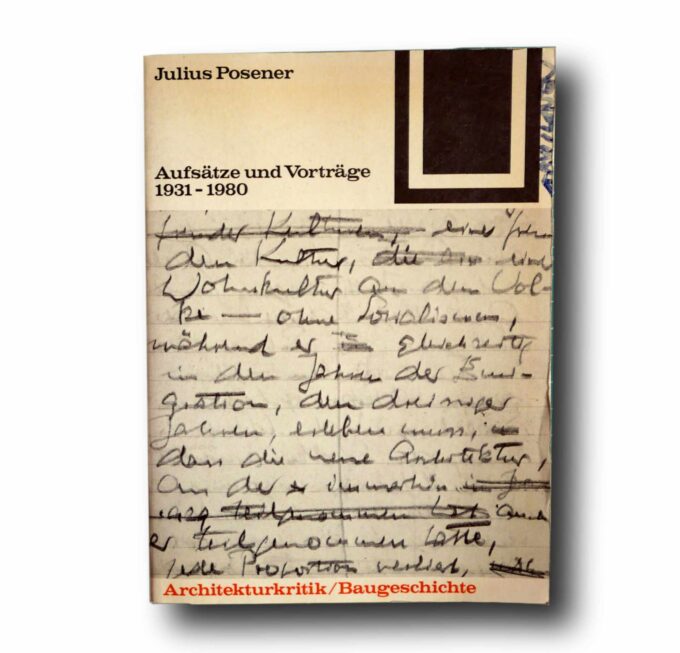 Julius Posener
Aufsätze und Vorträge
1931 - 1980
fremder Kulturen, einer frem
den Kultur, die einer
Wohnkultur an dem Vol-
ke — ohne Sozialismus,
während er gleichzeitig
in den Jahren der Emi-
gration, den dreissiger
Jahren, erleben muss,
dass die neue Architektur,
an der er immerhin
1929 teilgenommen
er teilgenommen hatte,
jede Proportion verliert,
Architekturkritik/Baugeschichte